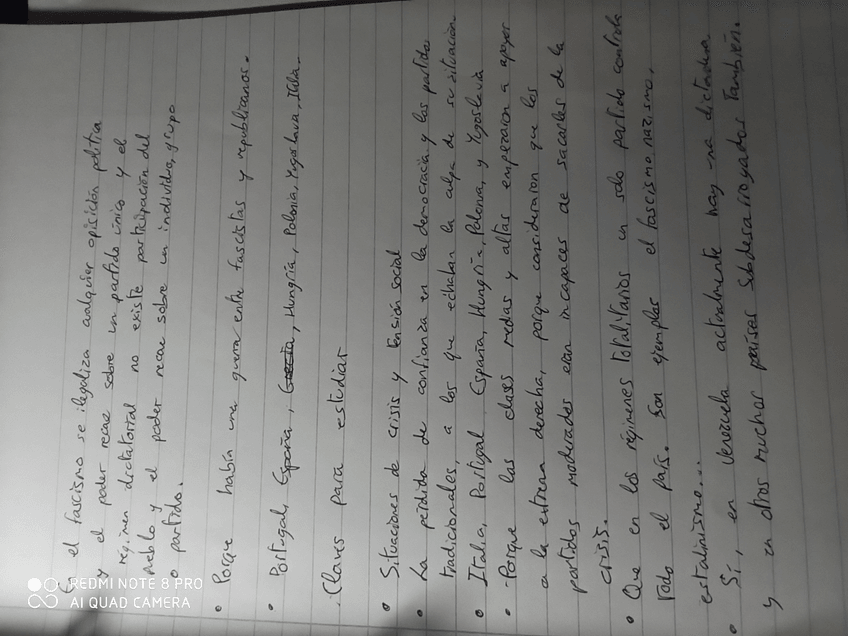 En el fascismo se ilegaliza cualquier opisición política
y el poder recae sobre un partido único y el
régimen dictatorial no existe participación del
pueblo y el poder recae sobre un individuo, grupo
o partido.
• Porque había una guerra entre fascistas y republicanos.
• Portugal, España, Grecia, Hungría, Polonia, Yugoslavia, Italia.
Claves para estudiar
• Situaciones de crisis y tensión social
• La pérdida de confianza en la democracia y los partidos
tradicionales, a los que echaban la culpa de su situación.
• Italia, Portugal, España, Hungría, Polonia, y Yugoslavia
• Porque las clases medas y altas empezaron a apoyar
a la extrema derecha, porque consideraron que los
partidos moderados eran incapaces de sacarlas de la
crisis.
• Que en los régimenes totalitarios un solo partido controla
todo el país. Son ejemplos el fascismo, nazismo,
estalinismo...
• Sí, en Venezuela actualmente hay una dictadura
y en otros muchos países subdesarroyados también.
REDMI NOTE 8 PRO
AI QUAD CAMERA